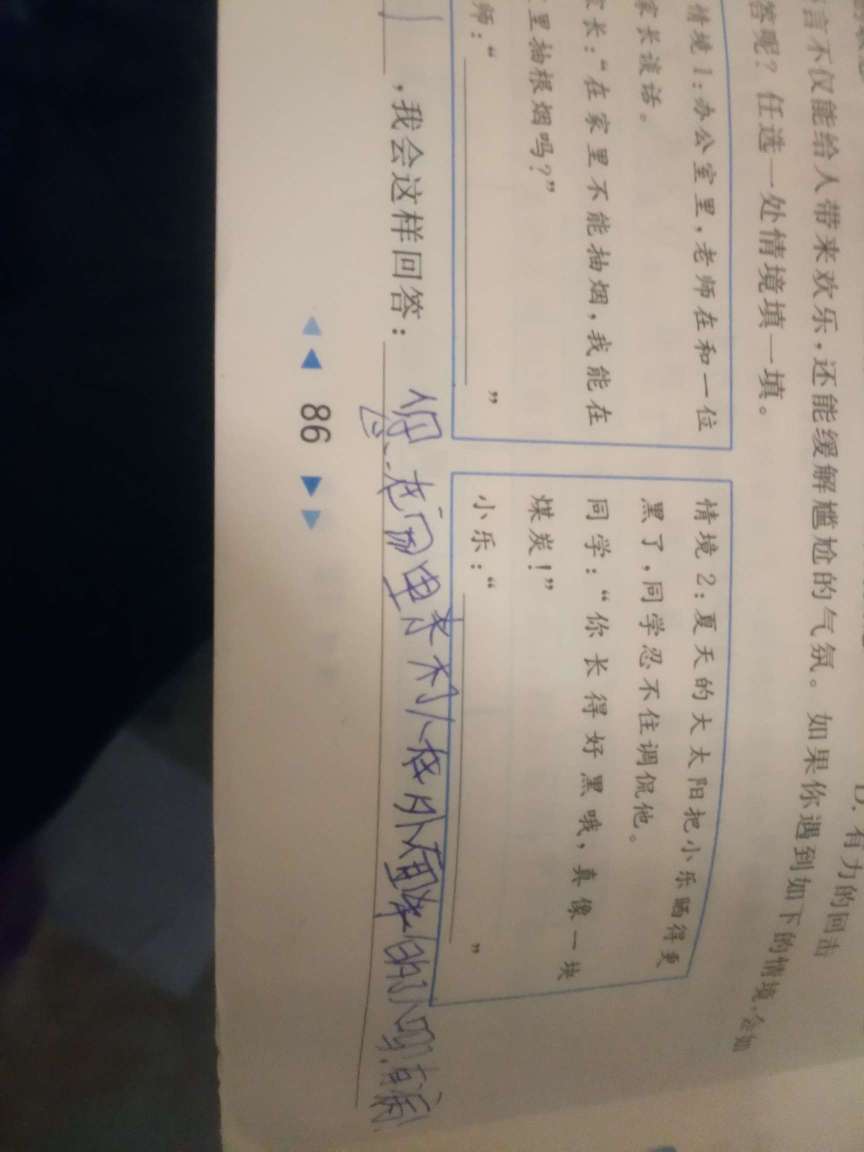 D. 有力的回击
言不仅能给人带来欢乐，还能缓解尴尬的气氛。如果你遇到如下的情境，会如
答呢？任选一处情境填一填。
情境1：办公室里，老师在和一位
家长谈话。
家长：“在家里不能抽烟，我能在
里抽根烟吗？”
师：“ ”
情境2：夏天的大太阳把小乐晒得更
黑了，同学忍不住调侃他。
同学：“你长得好黑哦，真像一块
煤炭！”
小乐：“ ”
，我会这样回答：
在家里 在外面
86